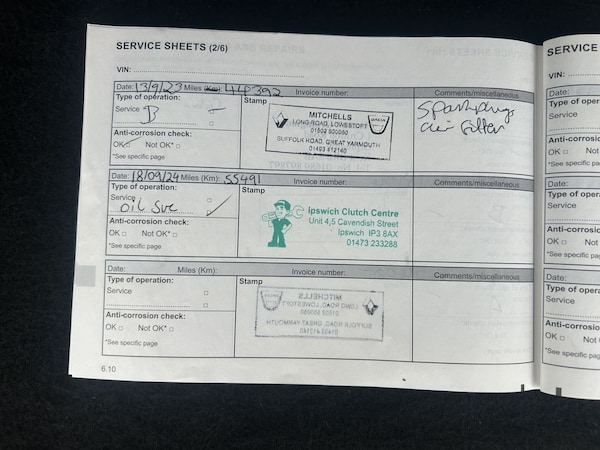 SERVICE SHEETS (2/6)
VIN:
Date: 13/9/23 Miles (Km): 44392 Invoice number: Comments/miscellaneous
Type of operation: Stamp
Service B
Anti-corrosion check:
OK Not OK*
*See specific page
MITCHELLS
LONG ROAD, LOWESTOFT
01502 500060
SUFFOLK ROAD, GREAT YARMOUTH
01493 412140
Spark plugs
air filter
Date: 18/09/24 Miles (Km): 55491 Invoice number: Comments/miscellaneous
Type of operation: Stamp
Service
oil Sve
Anti-corrosion check:
OK Not OK*
*See specific page
Ipswich Clutch Centre
Unit 4,5 Cavendish Street
Ipswich IP3 8AX
01473 233288
Date: Miles (Km): Invoice number: Comments/miscellaneous
Type of operation: Stamp
Service
Anti-corrosion check:
OK Not OK*
*See specific page
6.10
SERVICE
VIN:
Date:
Type of oper
Service
Anti-corrosio
OK Not
*See specific
Date:
Type of opera
Service
Anti-corrosic
OK Not
*See specific
Date:
Type of opera
Service
Anti-corrosio
OK Not
*See specific pag